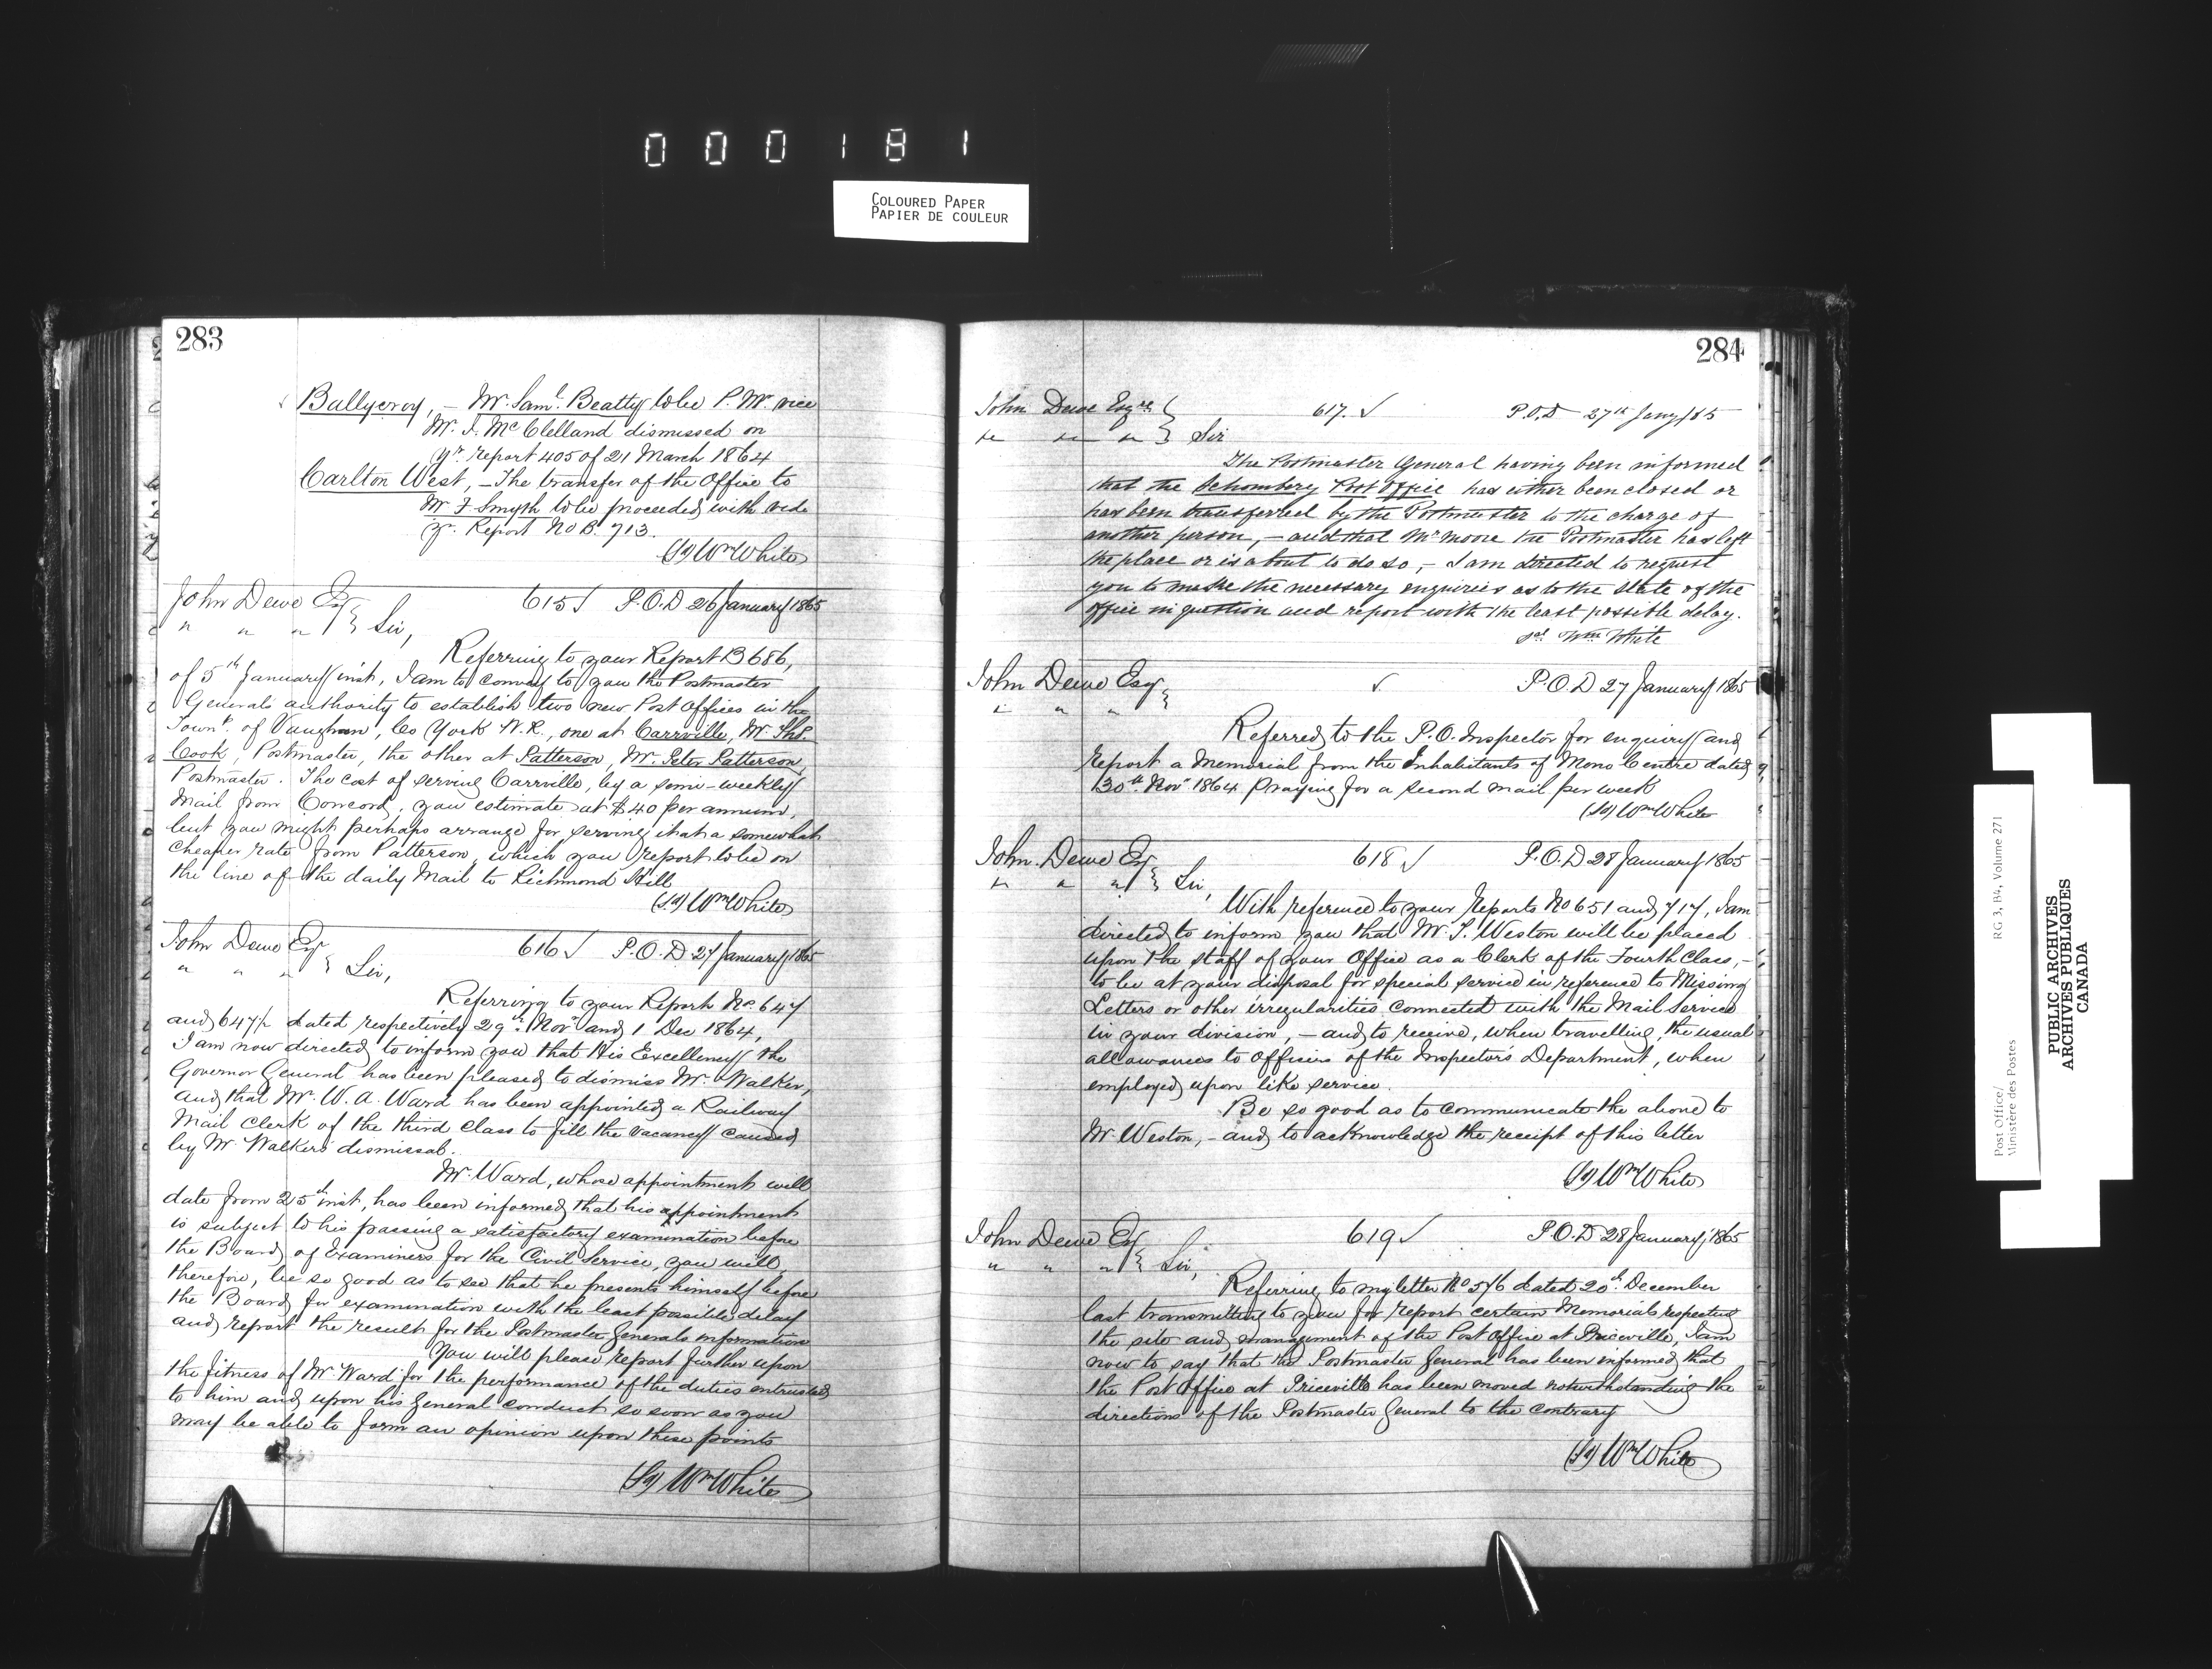 000181
COLOURED PAPER
PAPIER DE COULEUR
283
Ballycroy, - Mr. Saml. Beatty to be P. Mr. vice
Mr. J. McClelland dismissed on
yr. report 405 of 21 March 1864
Carlton West, - The transfer of the Office to
Mr F Smyth to be proceeded with vide
yr. Report No B. 713.
(Sd) Wm White
John Dewe Esq 615 √ P.O.D 26 January 1865
" " " } Sir,
Referring to your Report B 686,
of 5th January inst, I am to convey to you the Postmaster
Generals authority to establish two new Post Offices in the
Townp. of Vaughan, Co York W.R., one at Carrville, Mr. Thos.
Cook, Postmaster, the other at Patterson, Mr. Peter Patterson,
Postmaster. The cost of serving Carrville, by a semi-weekly
Mail from Concord, you estimate at $40 per annum,
but you might perhaps arrange for serving it at a somewhat
cheaper rate from Patterson, which you report to be on
the line of the daily Mail to Richmond Hill
(Sd) Wm White
John Dewe Esq 616 √ P.O.D 27 January 1865
" " " } Sir,
Referring to your Report No. 647
and 647½ dated respectively 29th Novr and 1 Dec 1864,
I am now directed to inform you that His Excellency the
Governor General has been pleased to dismiss Mr. Walker,
and that Mr. W. A. Ward has been appointed a Railway
Mail Clerk of the third Class to fill the vacancy caused
by Mr. Walkers dismissal.
Mr. Ward, whose appointment will
date from 25th inst, has been informed that his appointment
is subject to his passing a satisfactory examination before
the Board of Examiners for the Civil Service, you will,
therefore, be so good as to see that he presents himself before
the Board for examination with the least possible delay
and report the result for the Postmaster Generals information
You will please report further upon
the fitness of Mr. Ward for the performance of the duties entrusted
to him and upon his general conduct so soon as you
may be able to form an opinion upon these points
(Sd) Wm White
284
John Dewe Esqre { 617. √ P.O.D 27th Jany /65
" " " } Sir
The Postmaster General having been informed
that the Schomberg Post Office has either been closed or
has been transferred by the Postmaster to the charge of
another person, - and that Mr Moore the Postmaster has left
the place or is about to do so, - I am directed to request
you to make the necessary enquiries as to the state of the
office in question and report with the least possible delay.
sd Wm White
John Dewe Esq √ P.O.D 27 January 1865
" " " }
Referred to the P.O. Inspector for enquiry and
report a Memorial from the Inhabitants of Mono Centre dated
30th Novr 1864 Praying for a second mail per week
(Sd) Wm White
John Dewe Esq 618 √ P.O.D 28 January 1865
" " " } Sir,
With reference to your Reports No 651 and 717, I am
directed to inform you that Mr. T. Weston will be placed
upon the staff of your Office as a Clerk of the Fourth Class, -
to be at your disposal for special service in reference to Missing
Letters or other irregularities connected with the Mail Service
in your division, - and to receive, when travelling, the usual
allowances to Officers of the Inspector's Department, when
employed upon like service.
Be so good as to communicate the above to
Mr. Weston, - and to acknowledge the receipt of this letter
(Sd) Wm White
John Dewe Esq 619 √ P.O.D 28 January, 1865
" " " } Sir,
Referring to my letter No 576 dated 20th December
last transmitting to you for report certain Memorials respecting
the site and management of the Post Office at Priceville, I am
now to say that the Postmaster General has been informed that
the Post Office at Priceville has been moved notwithstanding the
directions of the Postmaster General to the contrary
(Sd) Wm White
Post Office/
Ministère des Postes
RG 3, B4, Volume 271
PUBLIC ARCHIVES
ARCHIVES PUBLIQUES
CANADA